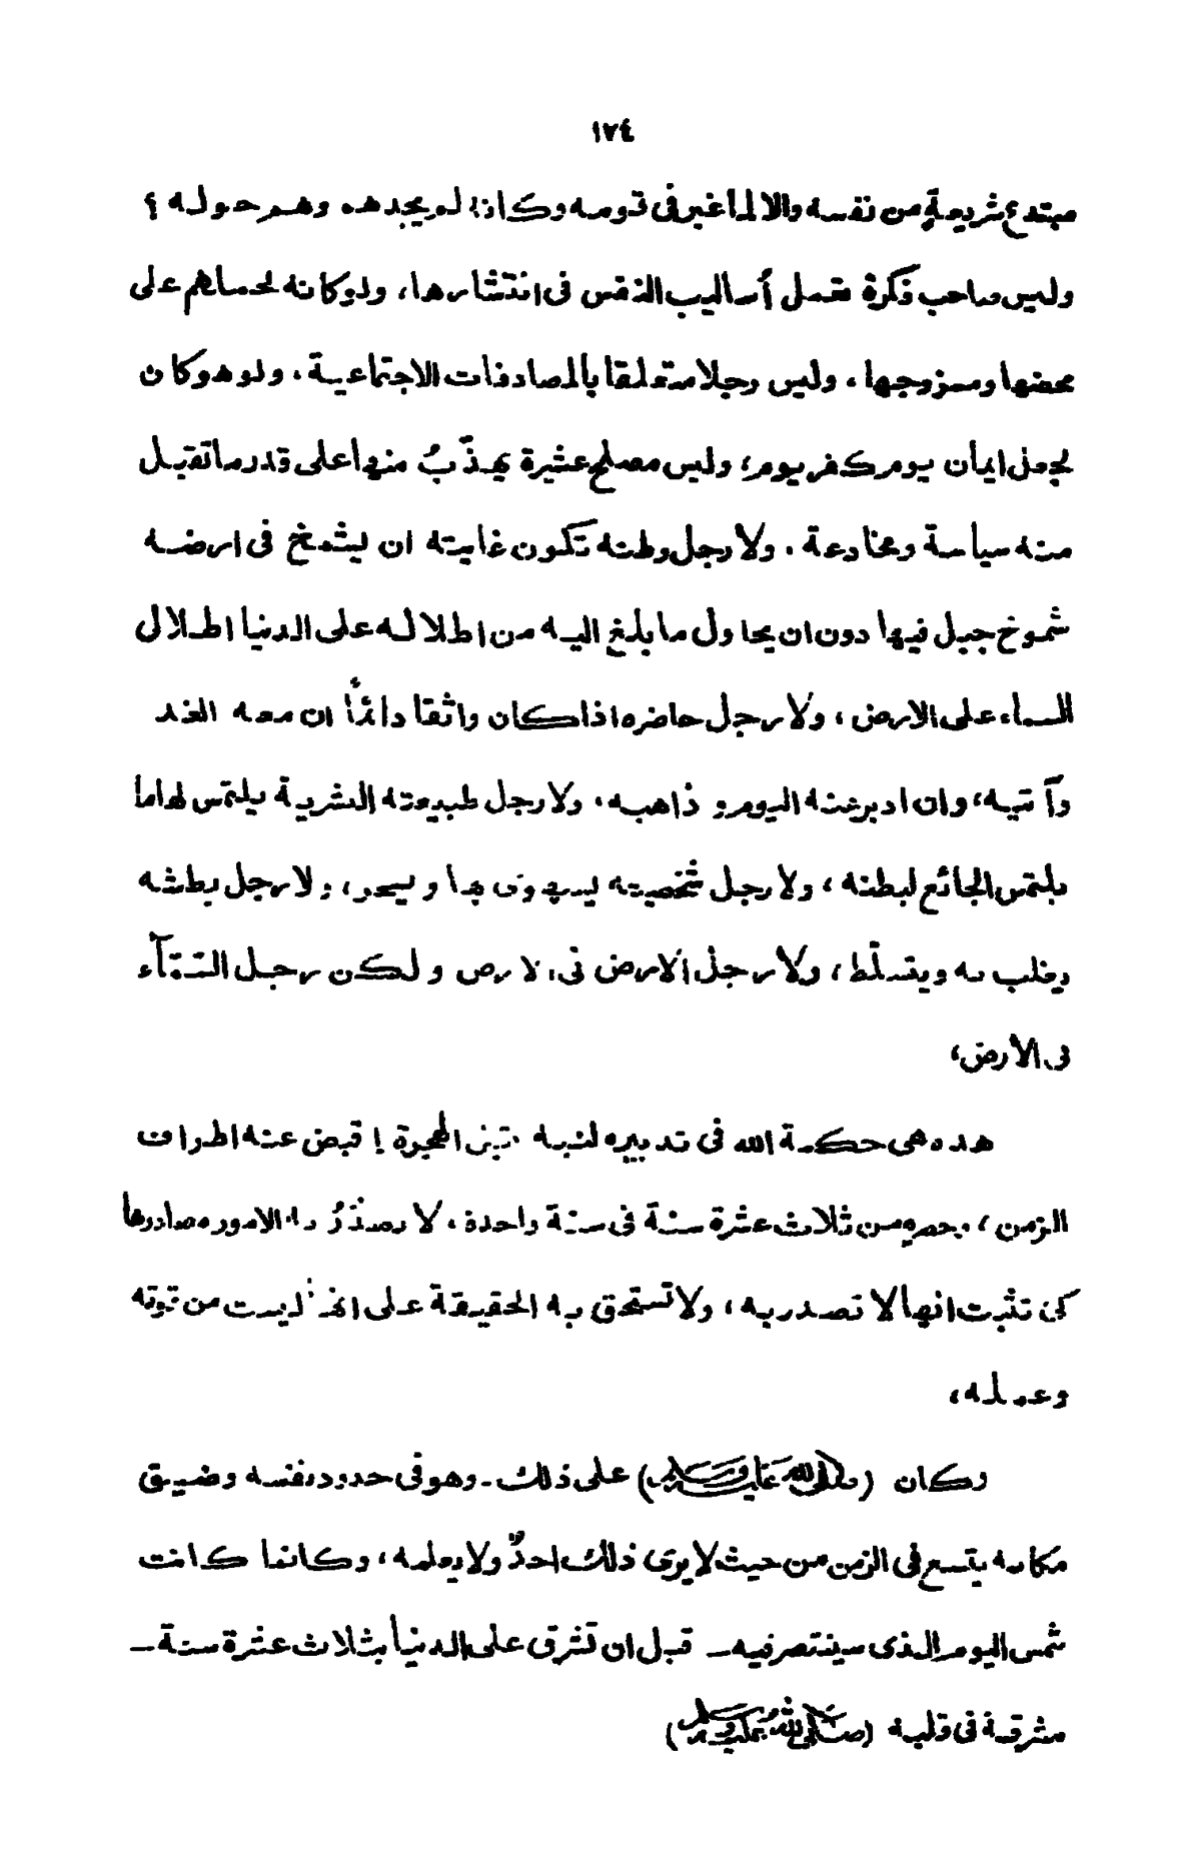 ١٧٤
مبتدع شريعةٍ من نفسه والا لما غبر فى قومه وكأنه لم يجدهم وهم حوله ؟
وليس صاحب فكرة تعمل أساليب النفس فى انتشارها، ولو كانه لحملهم على
محضها وممزوجها، وليس رجلا متعلقا بالمصادفات الاجتماعية، ولو هو كان
لجعل ايمان يوم كفر يوم؛ وليس مصلح عشيرة يهذّبُ منها على قدر ما تقبل
منه سياسة ومخادعة، ولا رجل وطنه تكون غايته ان يشمخ فى ارضه
شموخ جبل فيها دون ان يحاول ما بلغ اليه من اطلاله على الدنيا اطلال
السماء على الارض، ولا رجل حاضره اذا كان واثقا دائماً ان معه الغد
وآتيه، وان ادبر عنه اليوم و ذاهبه، ولا رجل طبيعته البشرية يلتمس لها ما
يلتمس الجائع لبطنه، ولا رجل شخصيته يستهوى بها ويسحر، ولا رجل بطشه
يغلب به ويتسلّط، ولا رجل الارض فى الارض ولكن رجل السّمآء
فى الأرض،
هذه هى حكمة الله فى تدبيره لنبيه قبل الهجرة ! قبض عنه اطراف
الزمن، وحصره من ثلاث عشرة سنة فى سنة واحدة، لا تصدُرُ به الامور مصادرها
كى تثبت انها لا تصدر به، ولا تستحق به الحقيقة على انها ليست من قوته
وعمله،
وكان (صلى الله عليه وسلم) على ذلك - وهو فى حدود نفسه وضيق
مكانه يتسع فى الزمن من حيث لا يرى ذلك احدٌ ولا يعلمه، وكانما كانت
شمس اليوم الذى سينتصر فيه – قبل ان تشرق على الدنيا بثلاث عشرة سنة –
مشرقة فى قلبه (صلى الله عليه وسلم)